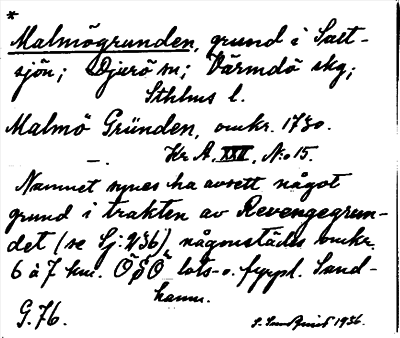 *
Malmögrunden, grund i Salt-
sjön; Djurö sn; Värmdö skg;
Sthlms l.
Malmö Gründen, omkr. 1730.
—. Kr A, XXII, N:o 15.
Namnet synes ha avsett något
grund i trakten av Revengegrun-
det (se Sj: 236), någonstädes omkr.
6 à 7 km. ÖSÖ lots- o. fyrpl. Sand-
hamn.
G. 76. S. 1936.